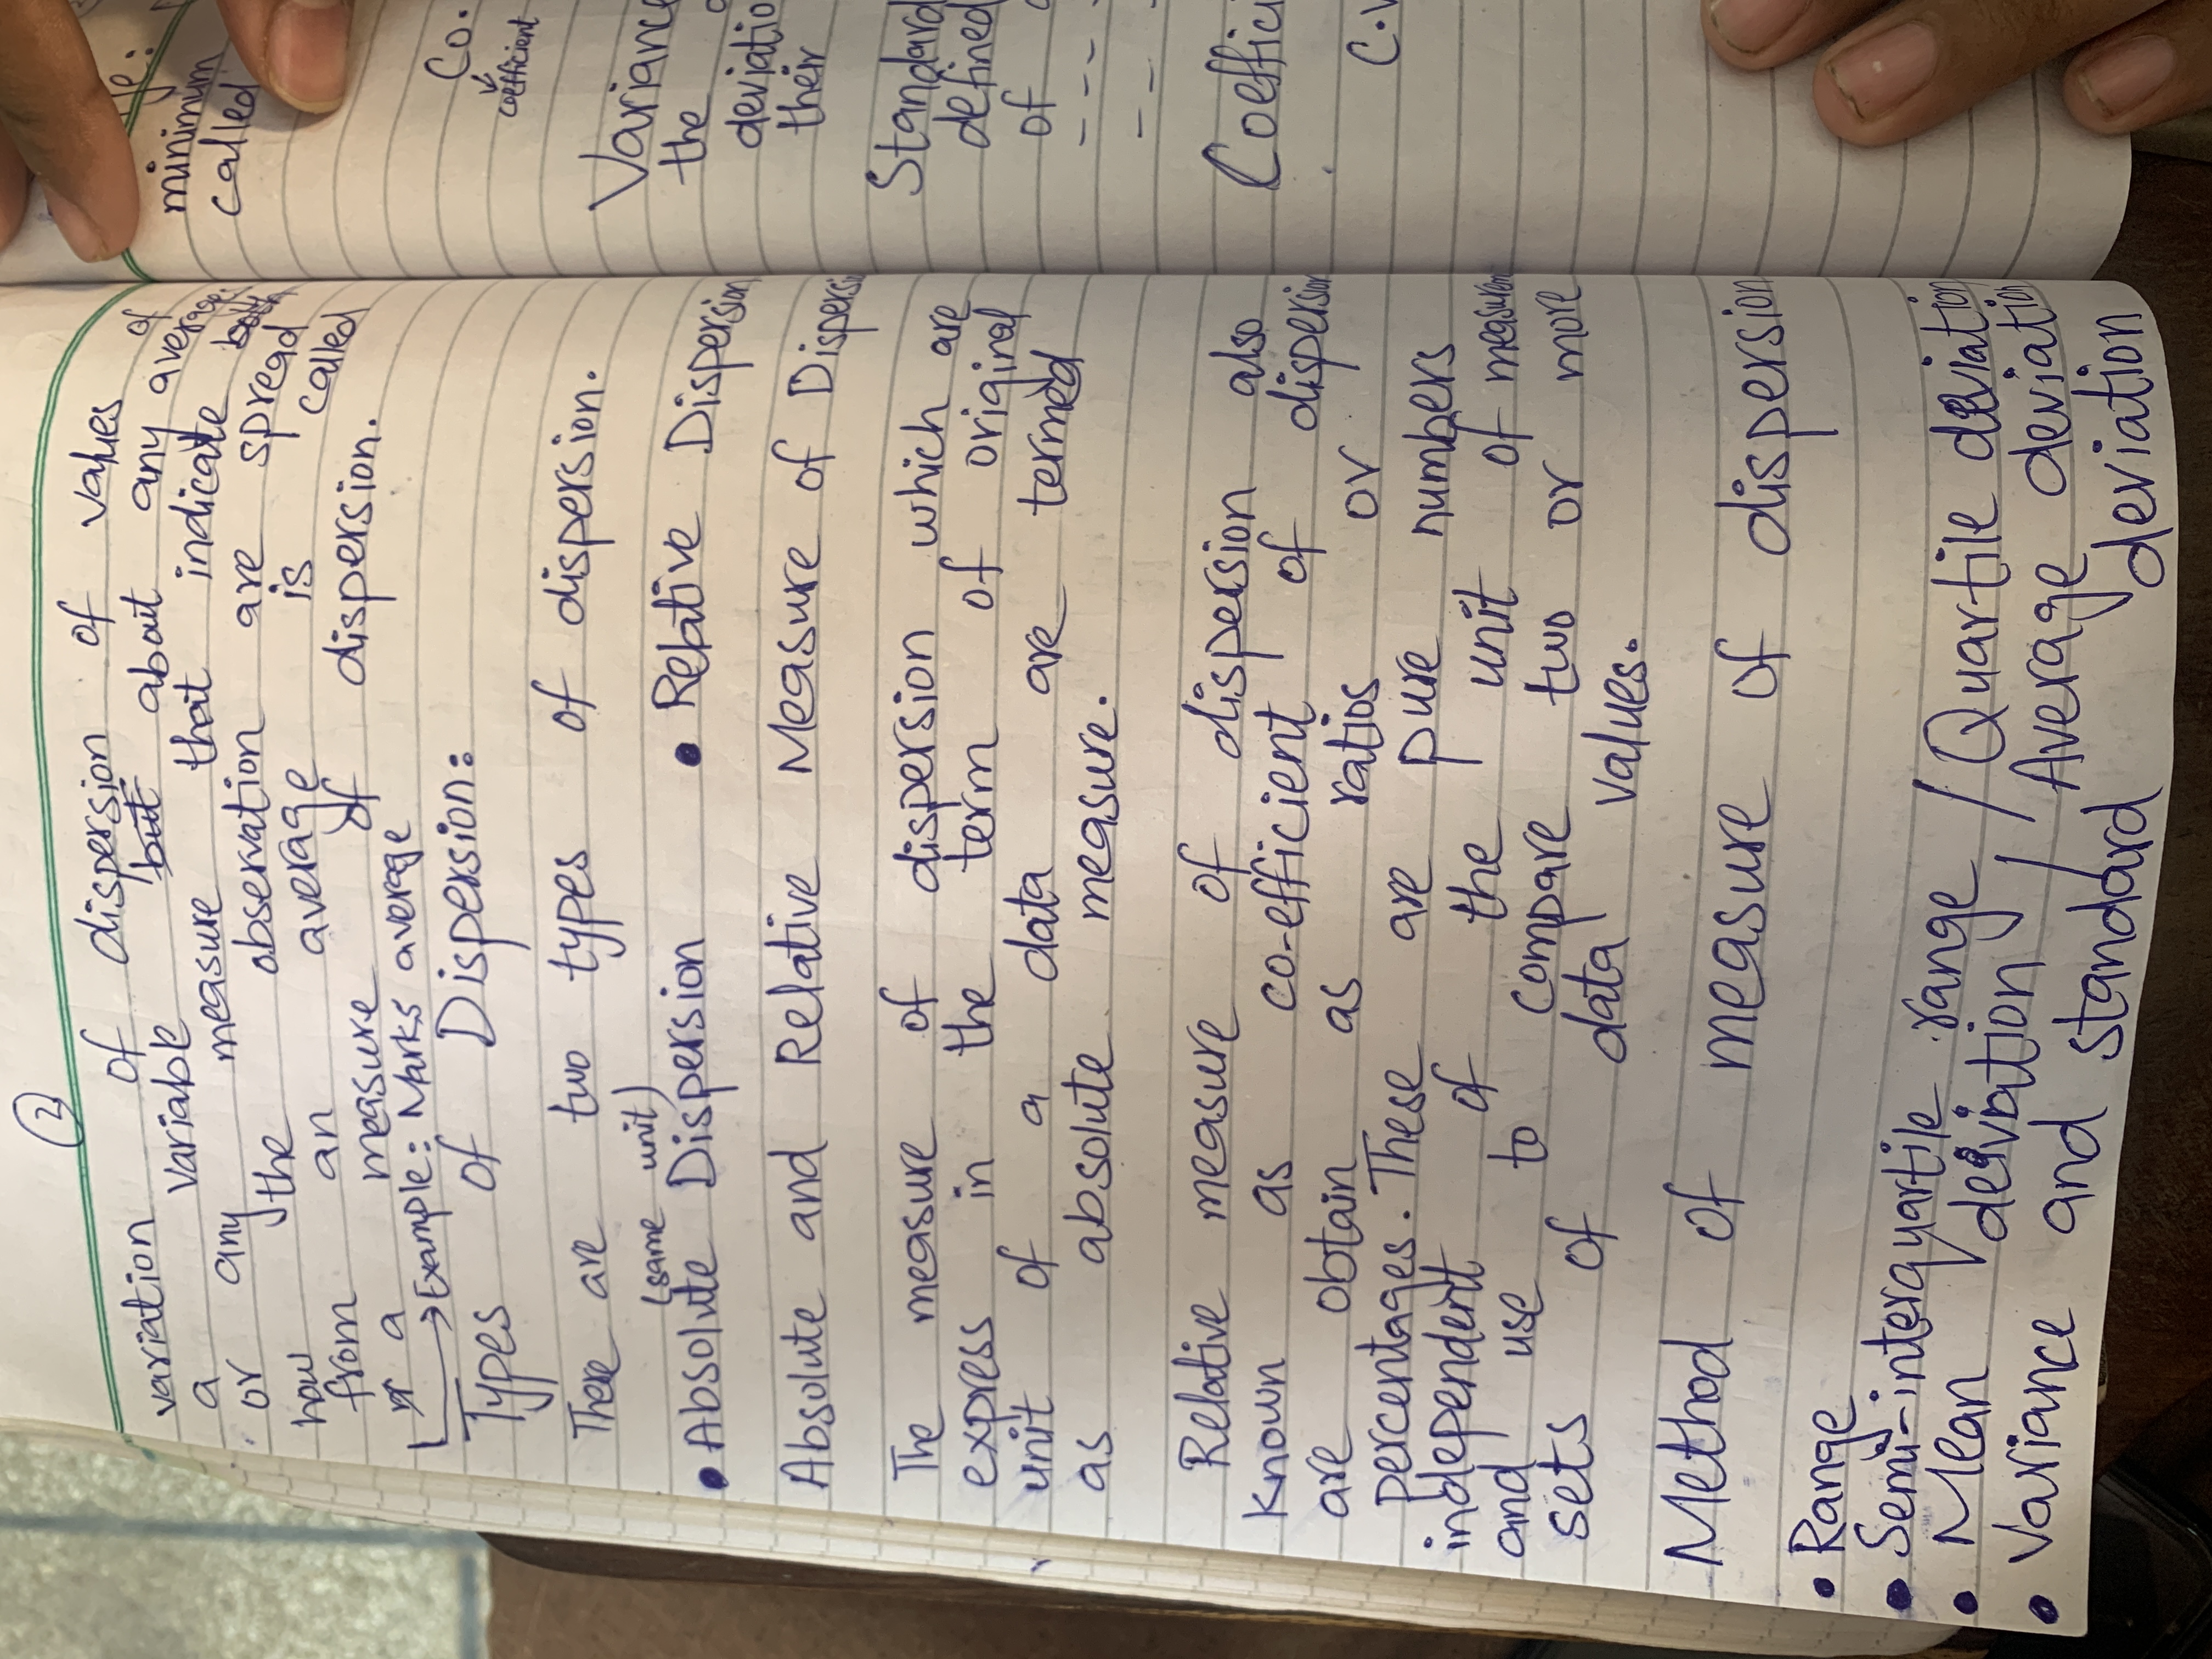 2
variation of dispersion of values of
a variable but about any average.
or any measure that indicate both
how the observation are spread
from an average is called
a measure of dispersion.
Example: Marks average
Types of Dispersion:
There are two types of dispersion.
(same unit)
• Absolute Dispersion • Relative Dispersion
Absolute and Relative Measure of Dispersi
The measure of dispersion which are
express in the term of original
unit of a data are termed
as absolute measure.
Relative measure of dispersion also
known as co-efficient of dispersion
are obtain as ratios or
percentages. These are pure numbers
independent of the unit of measurem
and use to compare two or more
sets of data values.
Method of measure of dispersion
• Range
• Semi-interquartile range / Quartile deviation
• Mean deviation / Average deviation
• Variance and standard deviation
ge:
minimum
called
Co.
coefficient
Variance
the
deviatio
their
Standard
defined
of
Coeffici
C.V